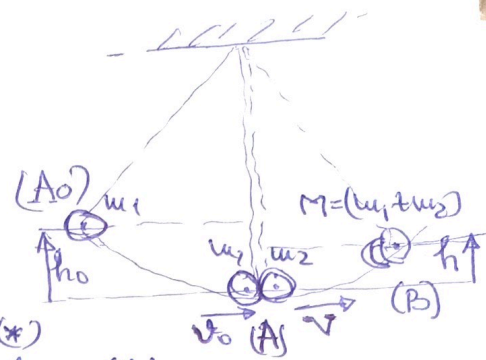 (A0) m1
M=(m1+m2)
h0
m1 m2
h
(*)
v0 (A) v
(B)